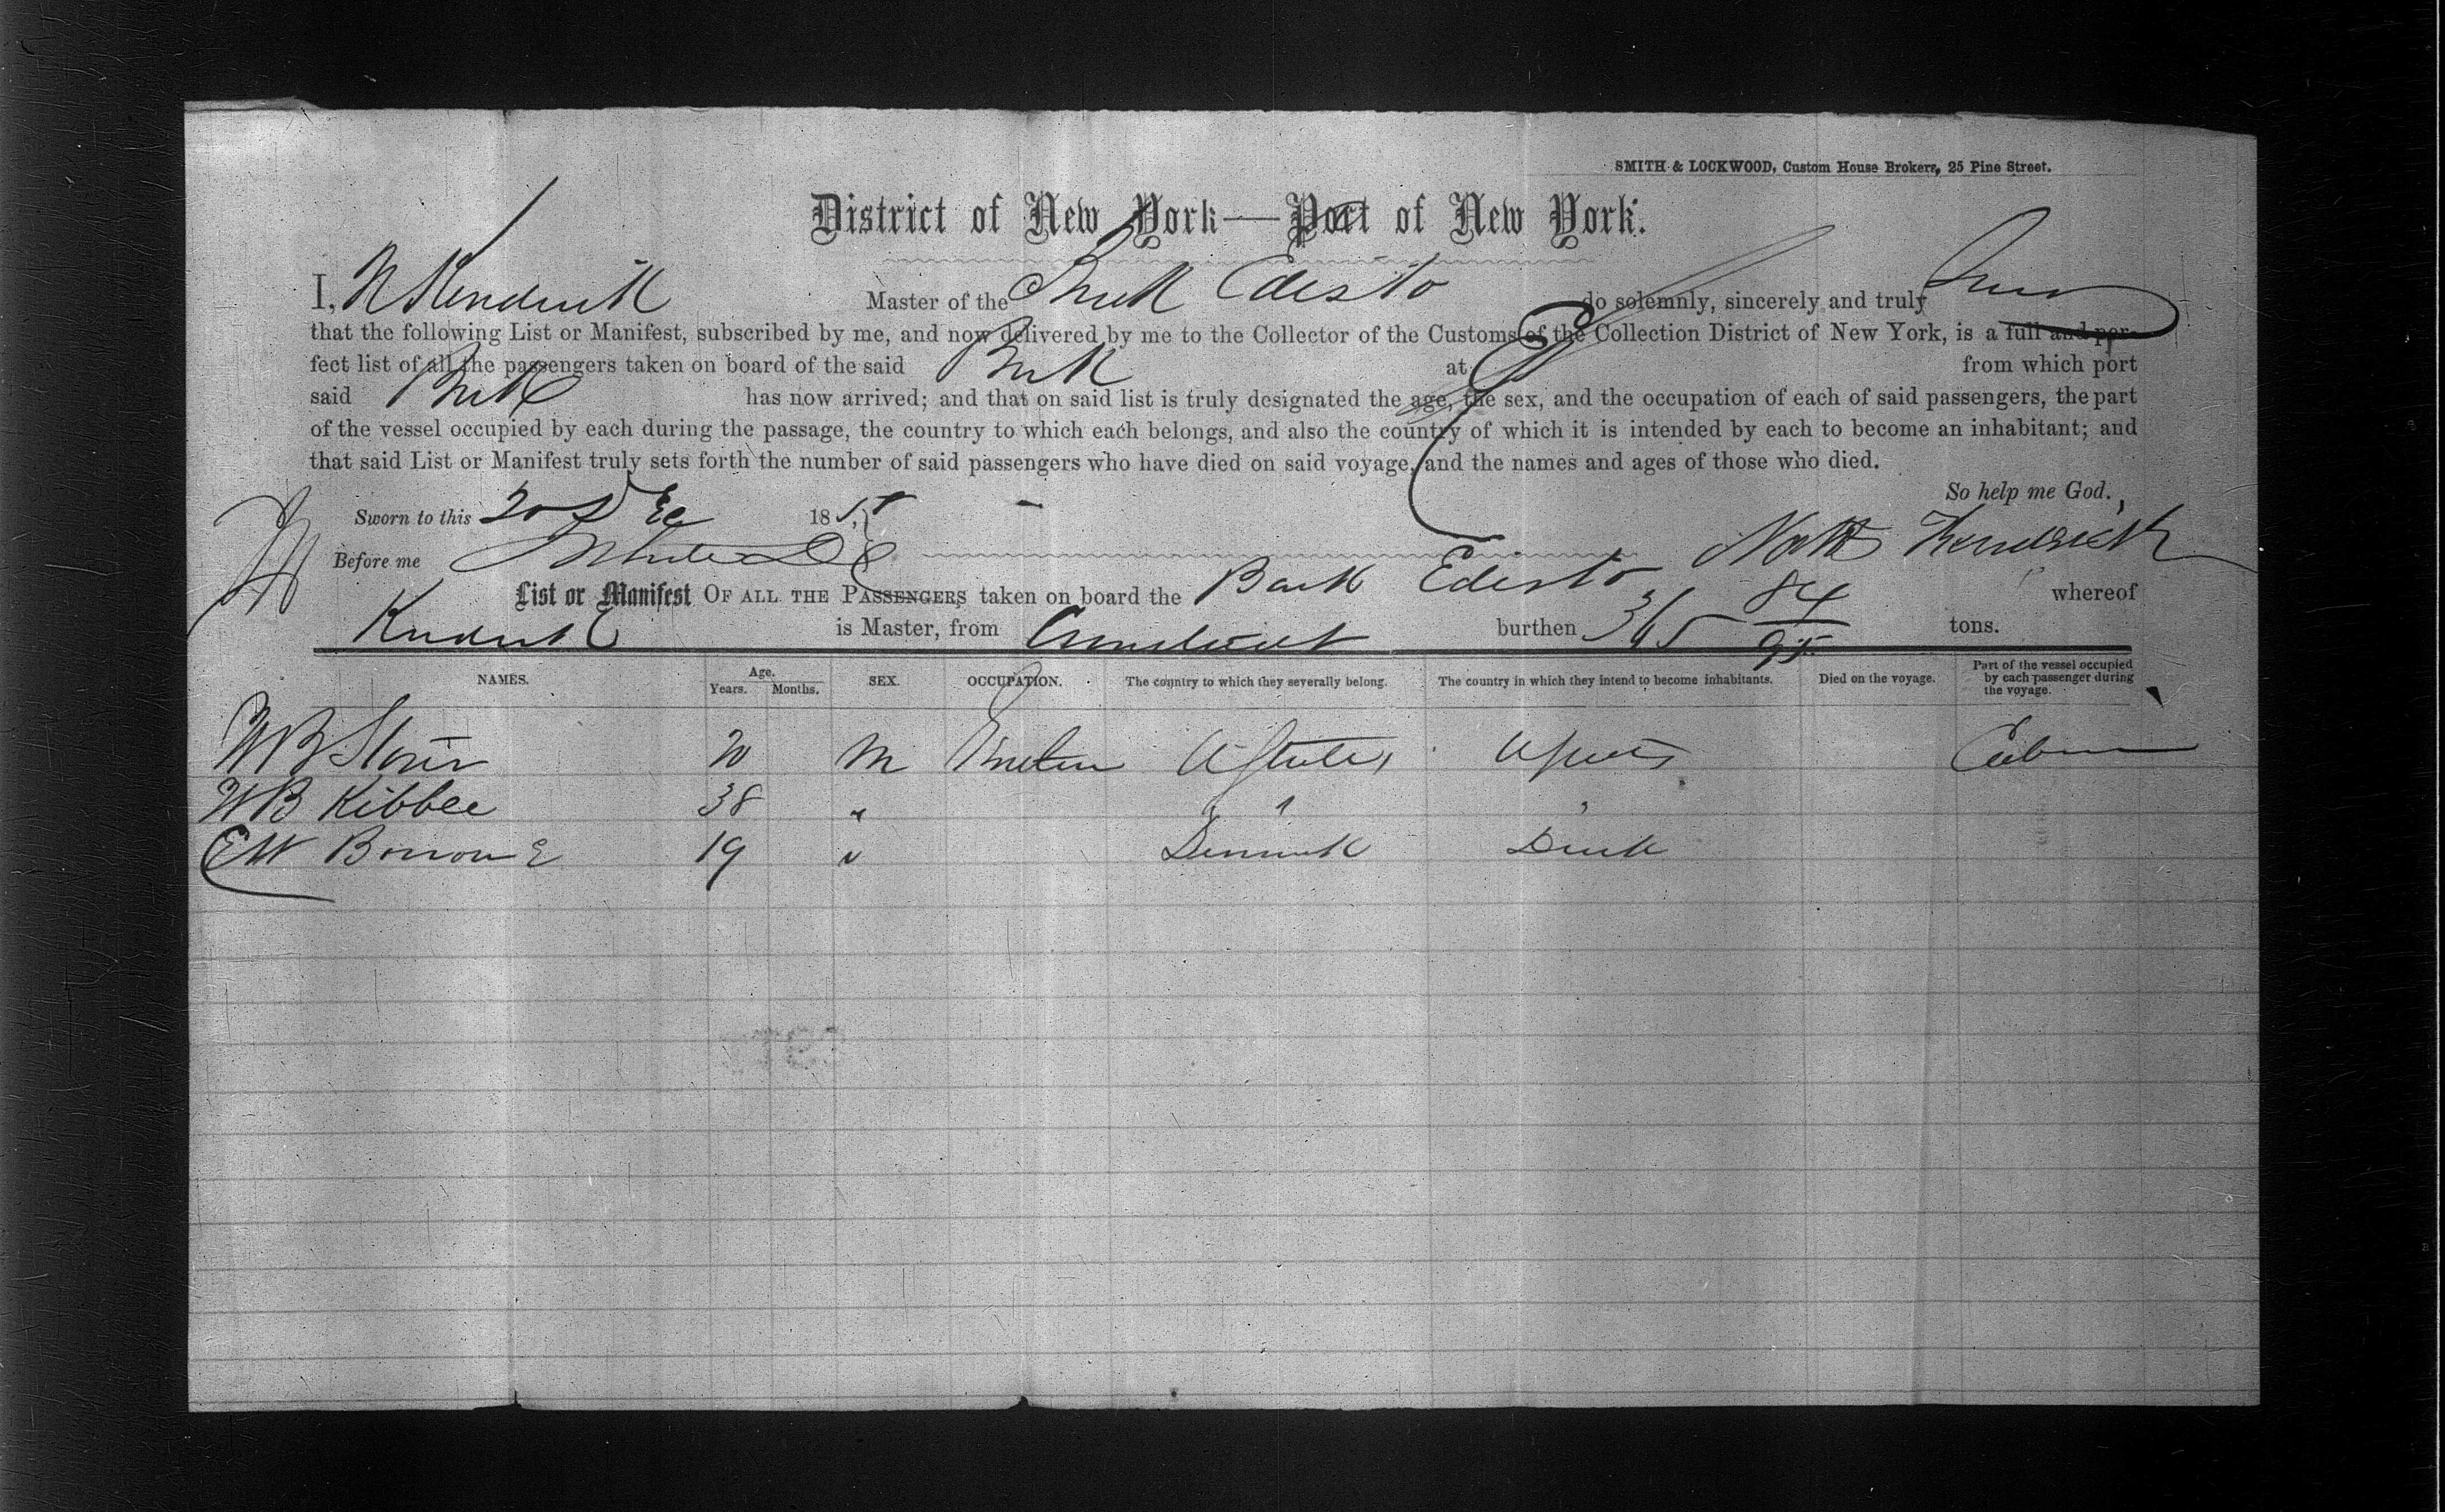 SMITH & LOCKWOOD, Custom House Brokers, 25 Pine Street.
District of New York—Port of New York.
I, N Kendrick Master of the Edisto do solemnly, sincerely and truly
that the following List or Manifest, subscribed by me, and now delivered by me to the Collector of the Customs of the Collection District of New York, is a full and per-
fect list of all the passengers taken on board of the said at from which port
said has now arrived; and that on said list is truly designated the age, the sex, and the occupation of each of said passengers, the part
of the vessel occupied by each during the passage, the country to which each belongs, and also the country of which it is intended by each to become an inhabitant; and
that said List or Manifest truly sets forth the number of said passengers who have died on said voyage, and the names and ages of those who died.
So help me God.
Sworn to this 20 Dec 18
Before me Kendrick
List or Manifest OF ALL THE PASSENGERS taken on board the Bark Edisto whereof
is Master, from burthen 365 84/95 tons.
NAMES. Age. Years. Months. SEX. OCCUPATION. The country to which they severally belong. The country in which they intend to become inhabitants. Died on the voyage. Part of the vessel occupied by each passenger during the voyage.
W B 20 M U States U States
W B Kibbee 38 "
E W 19 "